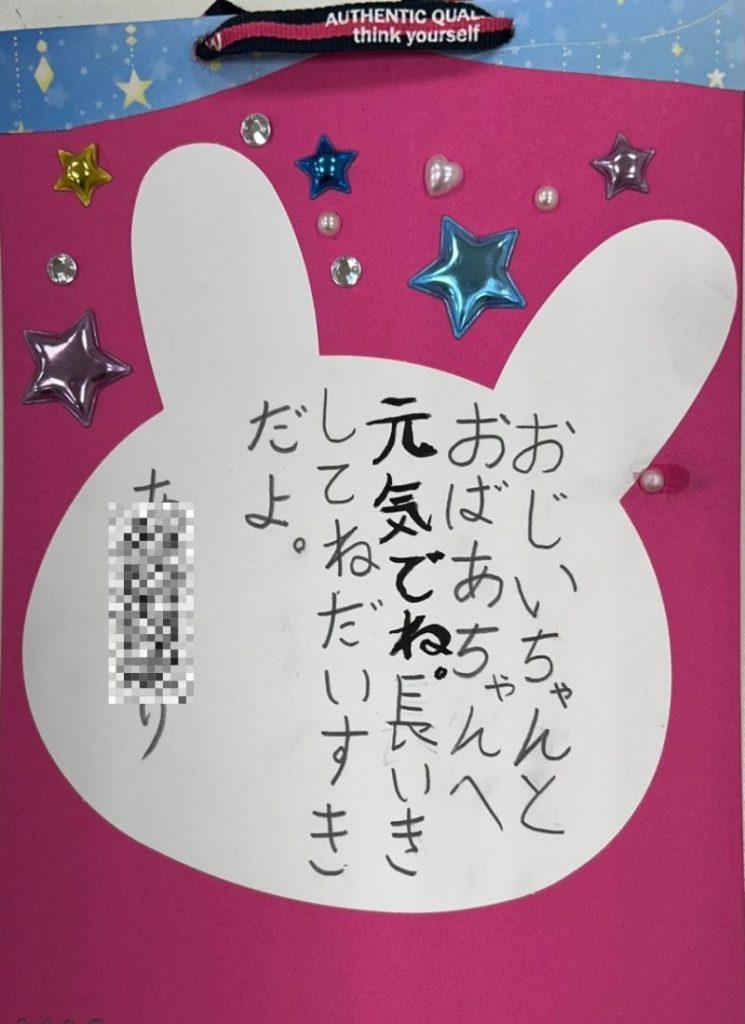 AUTHENTIC QUAL
think yourself
おじいちゃんと
おばあちゃんへ
元気でね。長いき
してねだいすき
だよ。
り